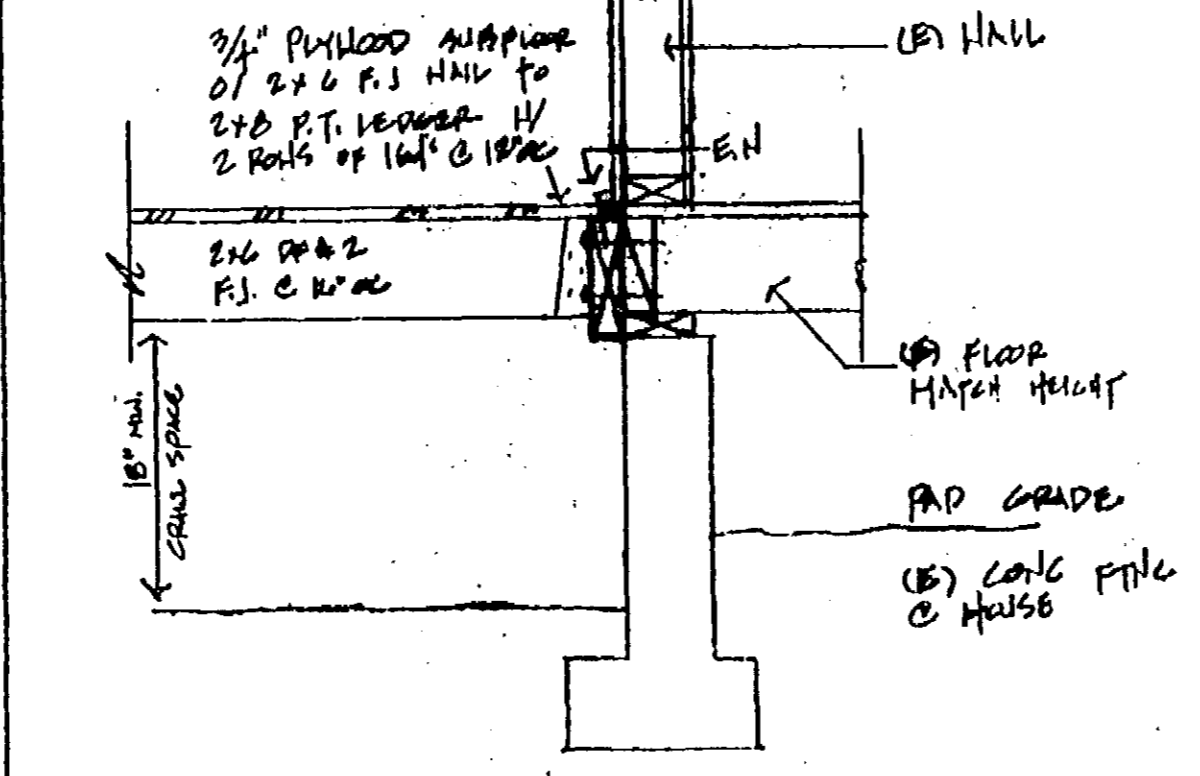 3/4" PLYWOOD SUBFLOOR
O/ 2x6 F.J NAIL TO
2x8 P.T. LEDGER W/
2 ROWS OF 16d's @ 12" OC
(E) WALL
E.N
2x6 DF#2
F.J. @ 16" OC
(E) FLOOR
MATCH HEIGHT
18" MIN.
CRAWL SPACE
PAD GRADE
(E) CONC FTNG
@ HOUSE